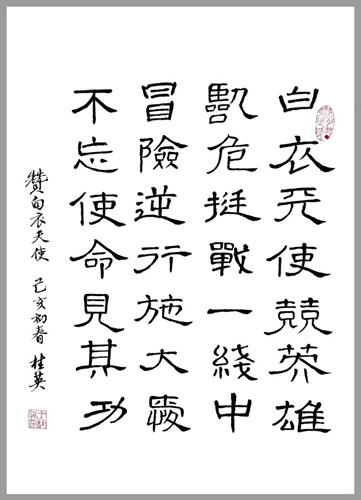 白衣天使競英雄
臨危挺戰一綫中
冒險逆行施大愛
不忘使命見其功
贊白衣天使 己亥初春 桂英